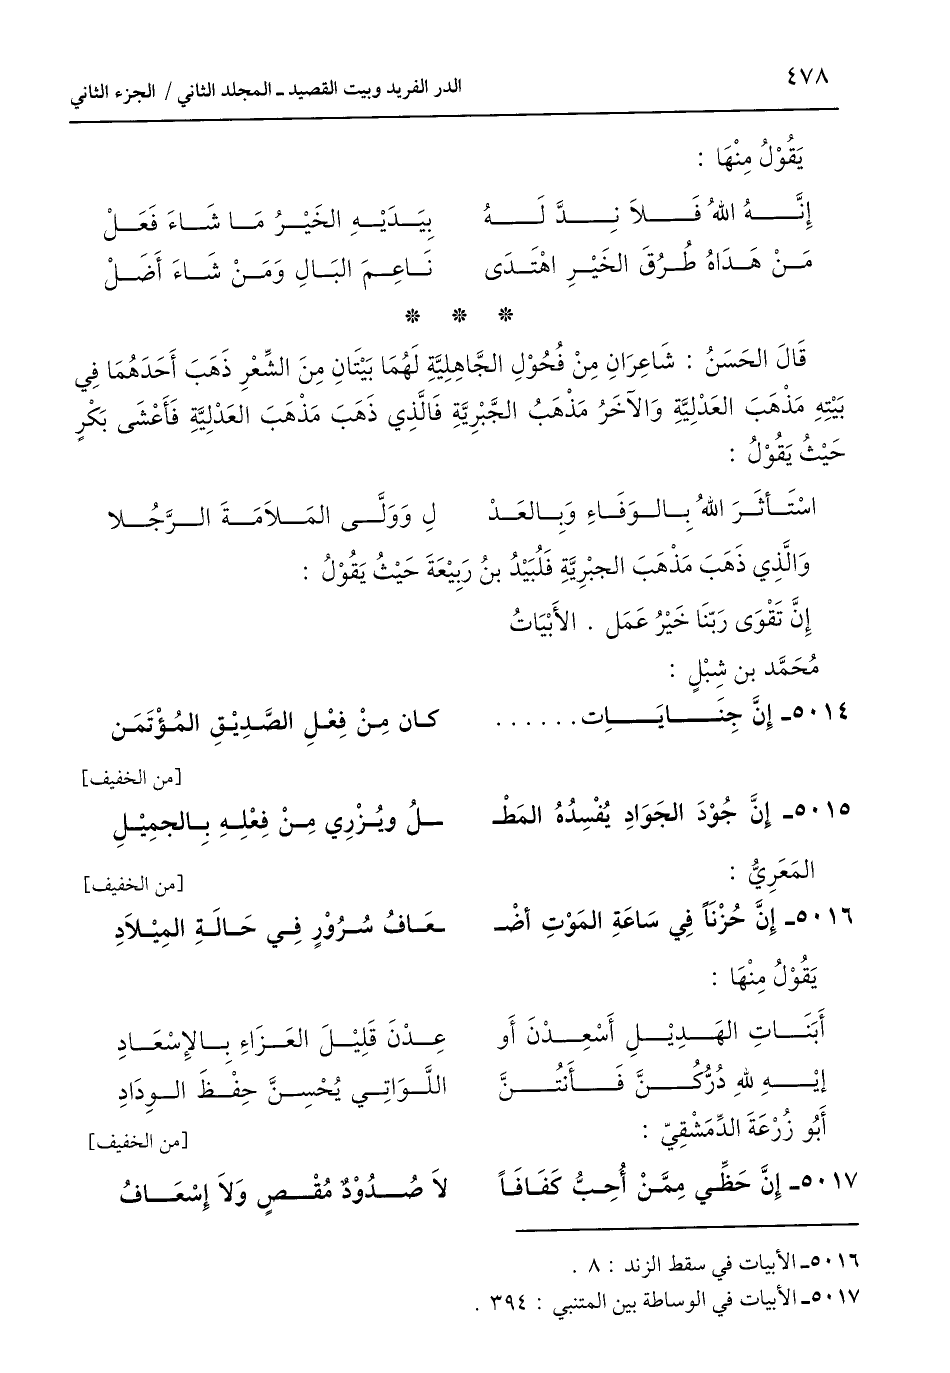 ٤٧٨
الدر الفريد وبيت القصيد - المجلد الثاني / الجزء الثاني
يَقُوْلُ مِنْهَا :
إِنَّهُ اللهُ فَلاَ نِدَّ لَهُ بِيَدَيْهِ الخَيْرُ مَا شَاءَ فَعَلْ
مَنْ هَدَاهُ طُرُقَ الخَيْرِ اهْتَدَى نَاعِمَ البَالِ وَمَنْ شَاءَ أَضَلْ
* * *
قَالَ الحَسَنُ : شَاعِرَانِ مِنْ فُحُوْلِ الجَاهِلِيَّةِ لَهُمَا بَيْتَانِ مِنَ الشِّعْرِ ذَهَبَ أَحَدَهُمَا فِي
بَيْتِهِ مَذْهَبَ العَدْلِيَّةِ وَالآخَرُ مَذْهَبُ الجَبْرِيَّةِ فَالَّذِي ذَهَبَ مَذْهَبَ العَدْلِيَّةِ فَأَعْشَى بَكْرٍ
حَيْثُ يَقُوْلُ :
اسْتَأثَرَ اللهُ بِالوَفَاءِ وَبِالعَدْ لِ وَوَلَّى المَلاَمَةَ الرَّجُلا
وَالَّذِي ذَهَبَ مَذْهَبَ الجبْرِيَّةِ فَلُبَيْدُ بنُ رَبِيْعَةَ حَيْثُ يَقُوْلُ :
إِنَّ تَقْوَى رَبّنَا خَيْرُ عَمَل . الأَبْيَاتُ
مُحَمَّد بن شِبْلٍ :
٥٠١٤ـ إِنَّ جِنَايَاتِ...... كان مِنْ فِعْلِ الصَّدِيْقِ المُؤْتَمَن
[من الخفيف]
٥٠١٥ـ إِنَّ جُوْدَ الجَوَادِ يُفْسِدُهُ المَطْـ ـلُ ويُزْرِي مِنْ فِعْلِهِ بِالجمِيْلِ
المَعَرِيُّ :
[من الخفيف]
٥٠١٦ـ إِنَّ حُزْنَاً فِي سَاعَةِ المَوْتِ أضْـ ـعَافُ سُرُوْرٍ فِي حَالَةِ المِيْلاَدِ
يَقُوْلُ مِنْهَا :
أَبَنَاتِ الهَدِيْلِ أَسْعِدْنَ أَو عِدْنَ قَلِيْلَ العَزَاءِ بِالإِسْعَادِ
إيْهِ للهِ دُرُّكُنَّ فَأنْتُنَّ اللَّوَاتِي يُحْسِنَّ حِفْظَ الودَادِ
أَبُو زُرْعَةَ الدِّمَشْقِيّ :
[من الخفيف]
٥٠١٧ـ إِنَّ حَظِّي مِمَّنْ أُحِبُّ كَفَافَاً لاَ صُدُوْدٌ مُقْصٍ وَلاَ إِسْعَافُ
٥٠١٦ـ الأبيات في سقط الزند : ٨ .
٥٠١٧ـ الأبيات في الوساطة بين المتنبي : ٣٩٤ .